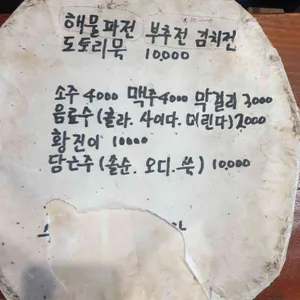 해물파전 부추전 김치전
도토리묵 10,000
소주 4000 맥주 4000 막걸리 3000
음료수 (콜라. 사이다. 미린다) 2000
황진이 10000
담근주 (솔순. 오디. 쑥) 10,000